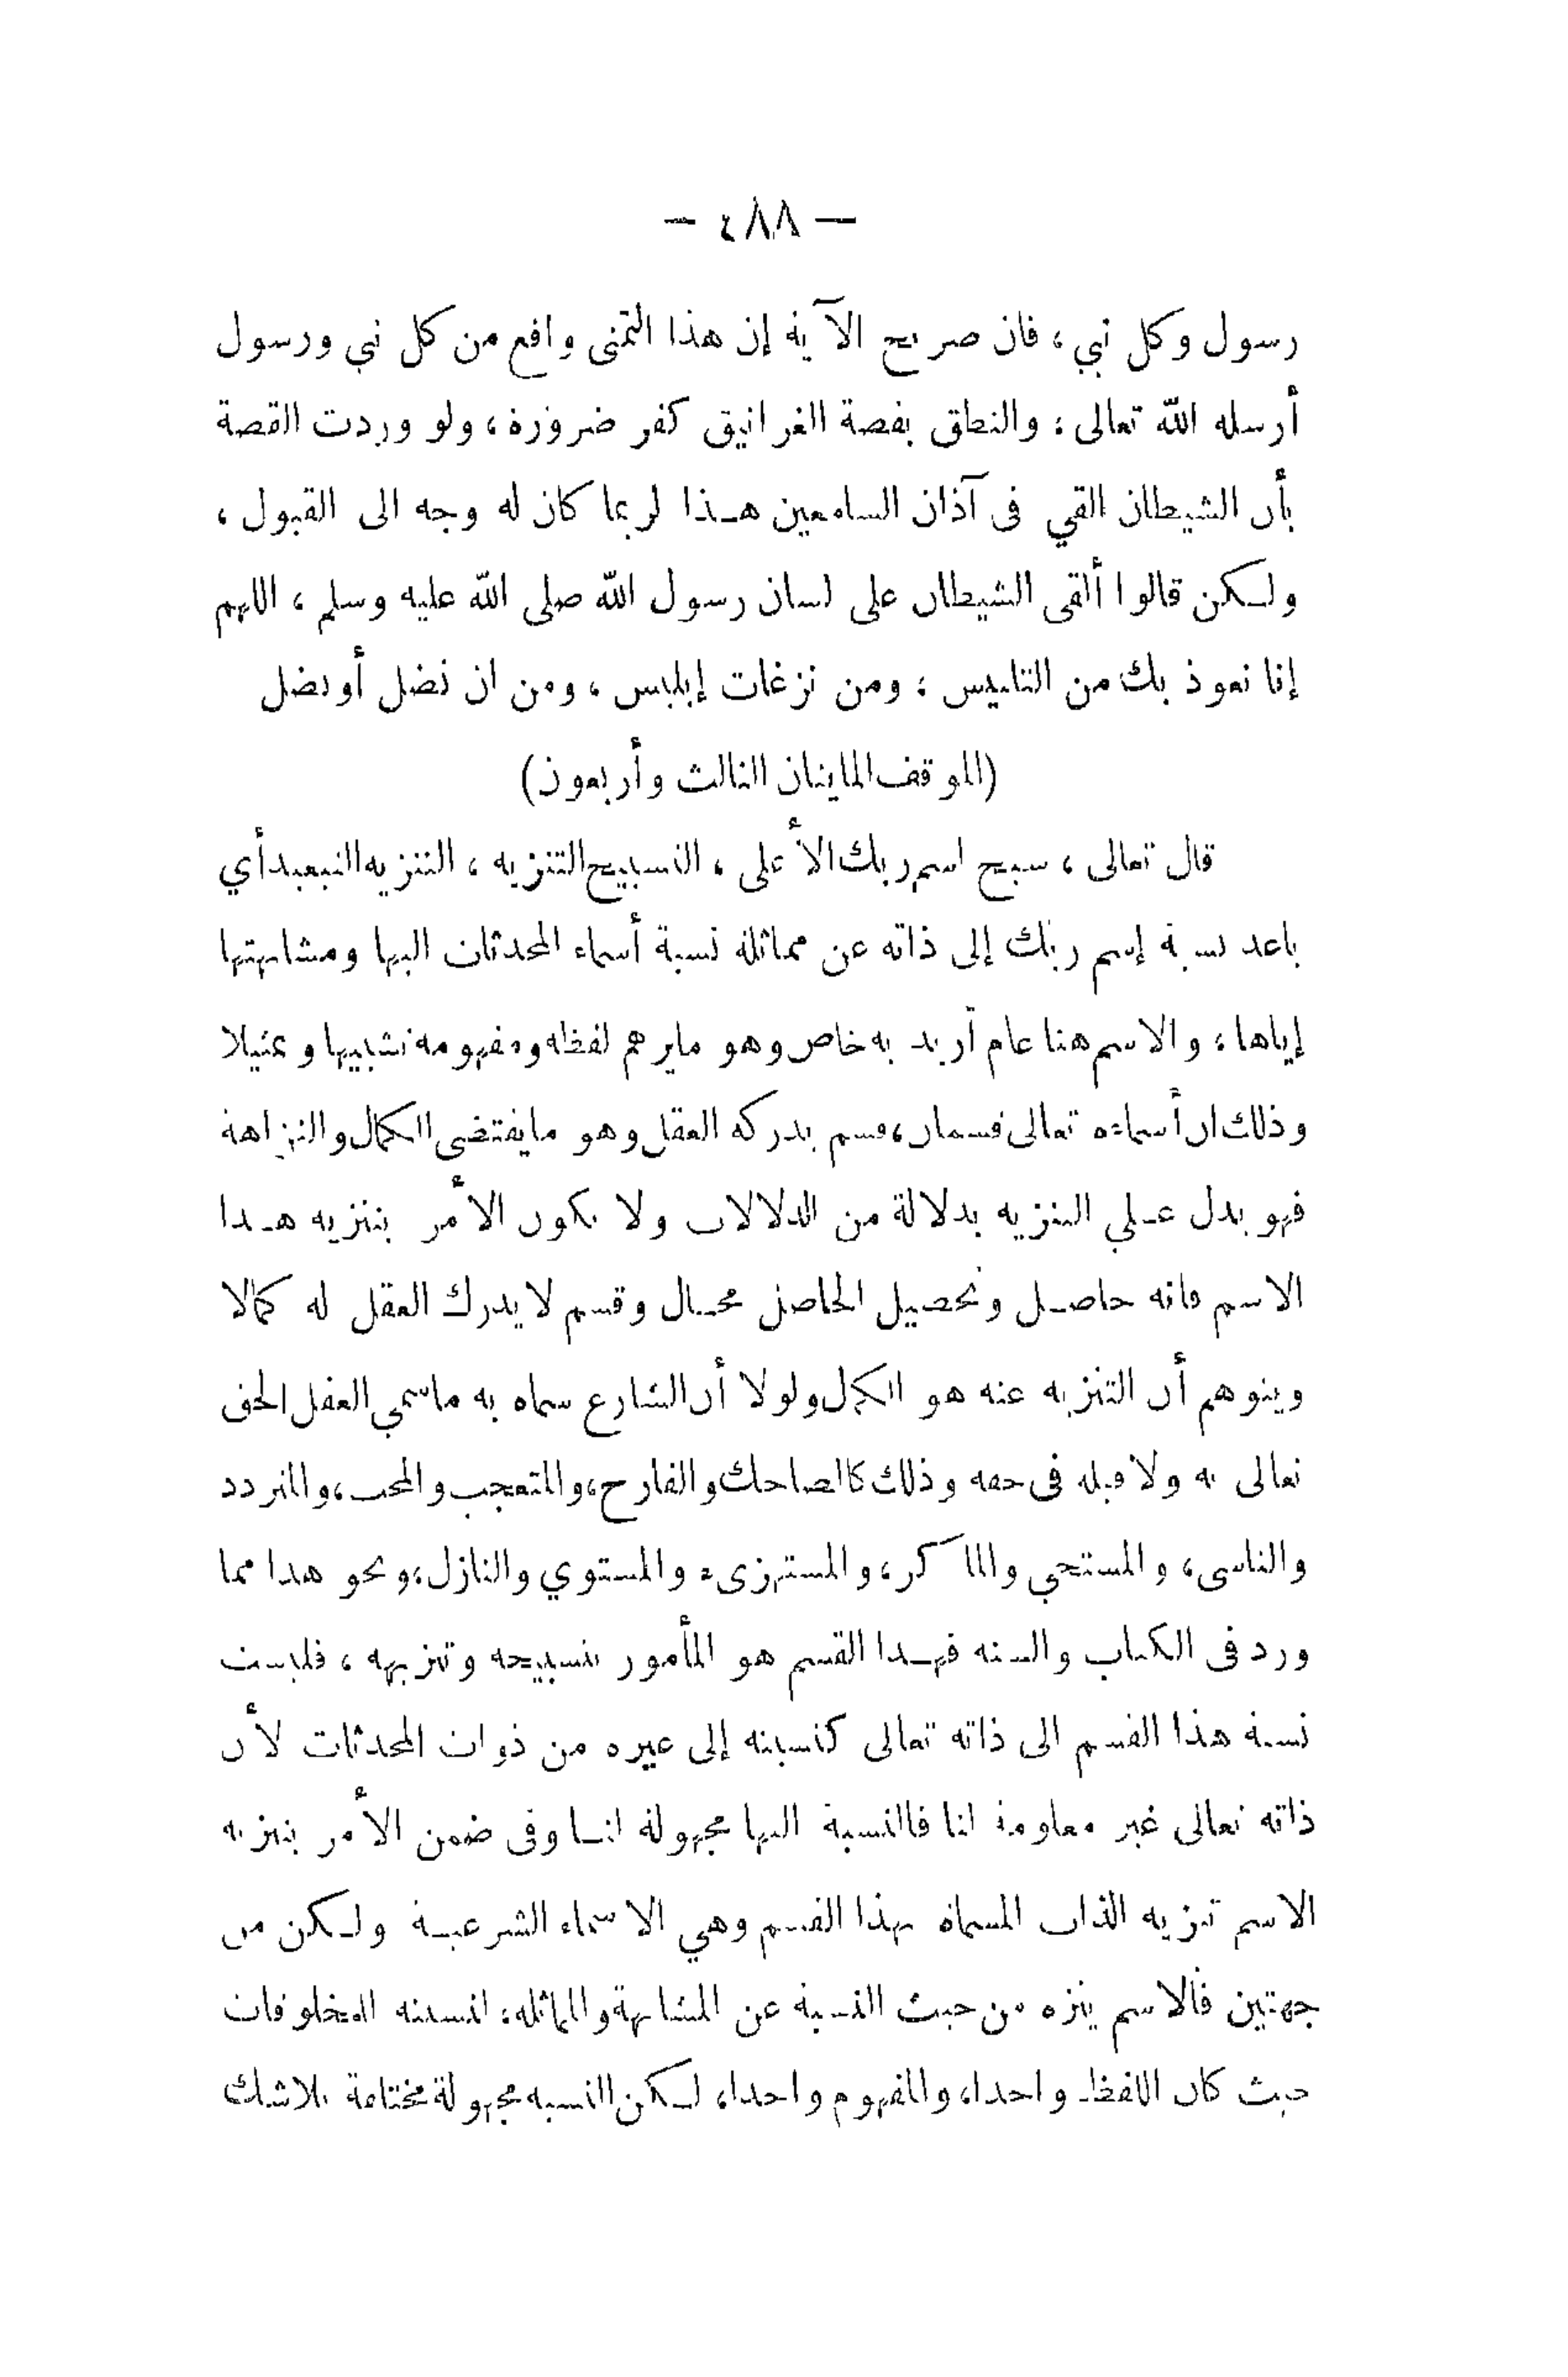 — ٤٨٨ —
رسول وكل نبي ، فان صريح الآية إن هذا التمنى واقع من كل نبي ورسول
أرسله الله تعالى ، والنطق بقصة الغرانيق كفر ضرورة ، ولو وردت القصة
بأن الشيطان القي فى آذان السامعين هذا لربما كان له وجه الى القبول ،
ولكن قالوا ألقى الشيطان على لسان رسول الله صلى الله عليه وسلم ، اللهم
إنا نعوذ بك من التلبيس ، ومن نزغات إبليس ، ومن ان نضل أو نضل
(الموقف المايتان الثالث وأربعون)
قال تعالى ، سبح اسم ربك الأعلى ، التسبيح التنزيه ، التنزيه التبعيد أي
باعد نسبة إسم ربك إلى ذاته عن مماثلة نسبة أسماء المحدثات اليها ومشابهتها
إياها ، والاسم هنا عام أريد به خاص وهو مايوهم لفظه ومفهومه تشبيها وتمثيلا
وذلك ان أسماءه تعالى قسمان ، قسم يدركه العقل وهو مايقتضى الكمال والنزاهة
فهو يدل علي التنزيه بدلالة من الدلالات ولا يكون الأمر بتنزيه هذا
الاسم فانه حاصل وتحصيل الحاصل محال وقسم لا يدرك العقل له كمالا
ويتوهم أن التنزيه عنه هو الكمال ولولا أن الشارع سماه به ماسمي العقل الحق
تعالى به ولا قبله فى حقه وذلك كالضاحك والفارح ، والمتعجب والمحب ، والمتردد
والناسى ، والمستحي والماكر ، والمستهزىء والمستوي والنازل ، ونحو هذا مما
ورد فى الكتاب والسنة فهذا القسم هو المأمور بتسبيحه وتنزيهه ، فليست
نسبة هذا القسم الى ذاته تعالى كنسبته إلى غيره من ذوات المحدثات لأن
ذاته تعالى غير معلومة لنا فالنسبة اليها مجهولة لنا وفى ضمن الأمر بتنزيه
الاسم تنزيه الذات المسماة بهذا القسم وهي الاسماء الشرعية ولكن من
جهتين فالاسم ينزه من حيث النسبة عن المشابهة والمماثله ، لنسبته المخلوقات
حيث كان اللفظ واحدا ، والمفهوم واحدا ، لكن النسبه مجهولة مختلفة بلاشك